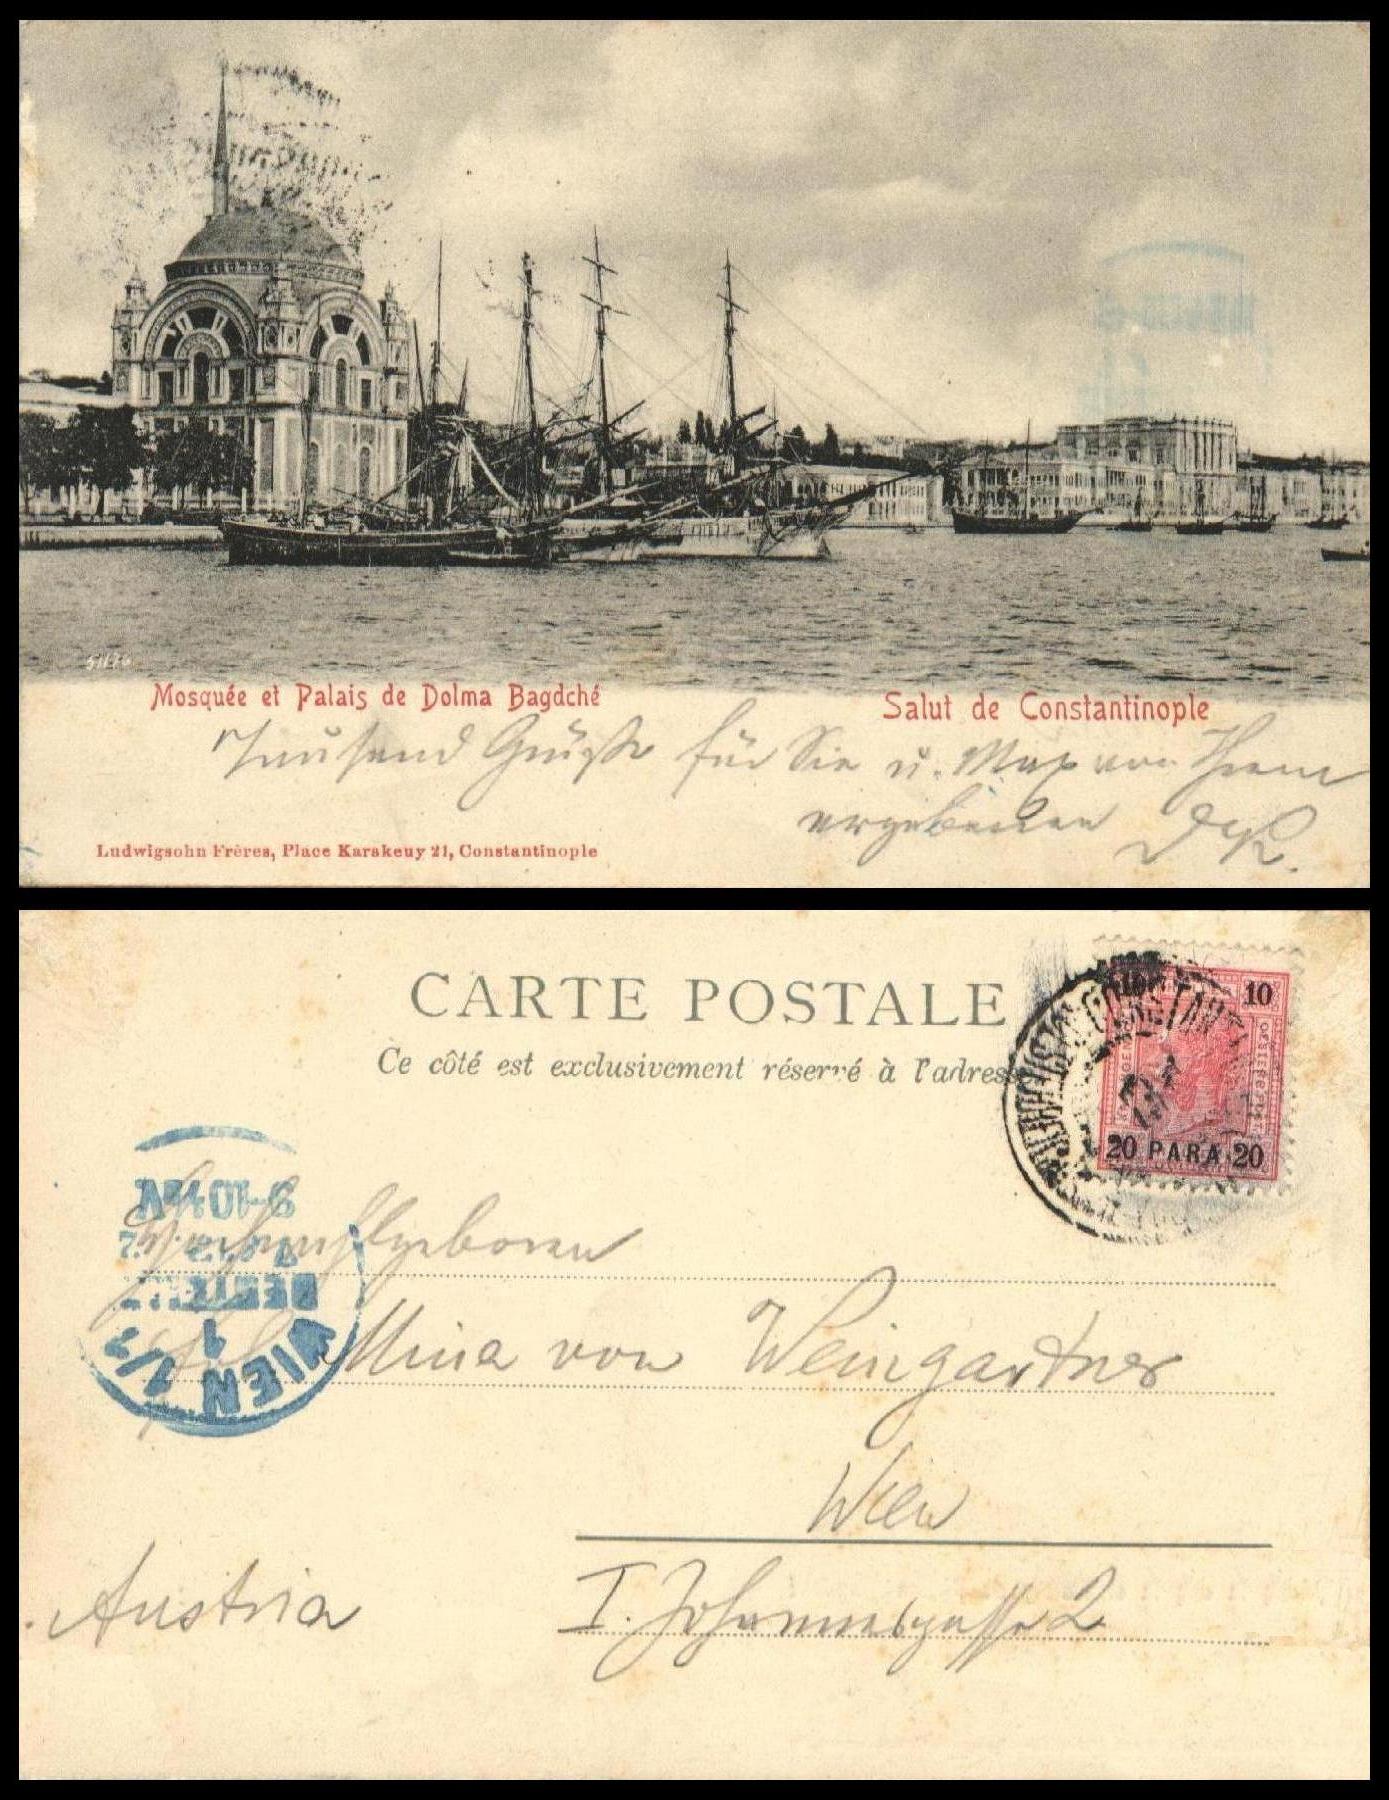 51176
Mosquée et Palais de Dolma Bagdché
Salut de Constantinople
Tausend Grüße für Sie u. Max von Ihrem
ergebenen
Ludwigsohn Frères, Place Karakeuy 21, Constantinople
CARTE POSTALE
Ce côté est exclusivement réservé à l'adresse
10
20 PARA 20
Hochwohlgeboren
Mina von Weingartner
Wien
I. Johannesgasse 2
Austria
WIEN 1/1